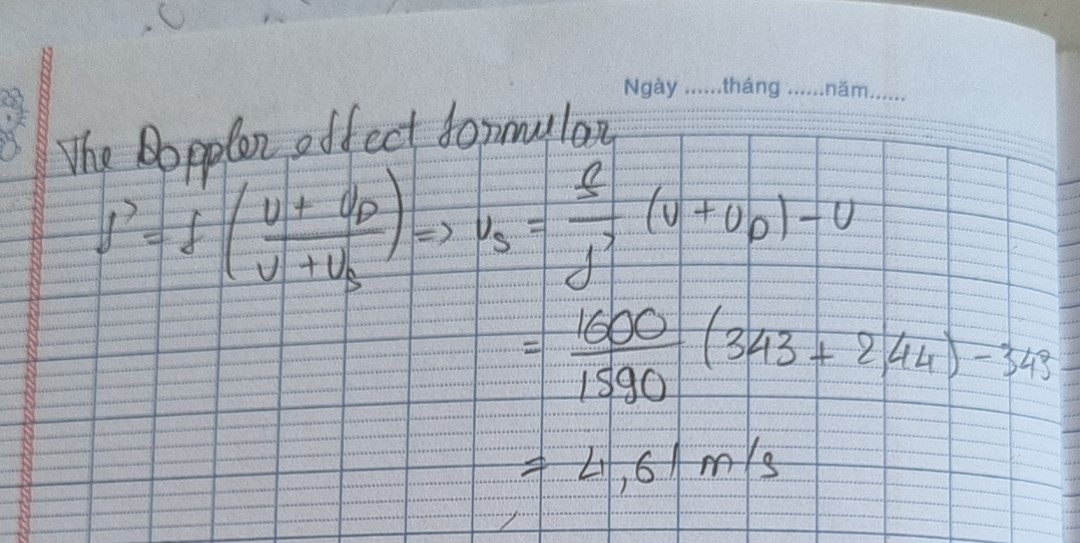 Ngày ......tháng ......năm......
The Doppler effect formular
f' = f ( (v + v_D) / (v + v_s) ) => v_s = f / f' (v + v_D) - v
= 1600 / 1590 (343 + 2,44) - 343
= 4,61 m/s